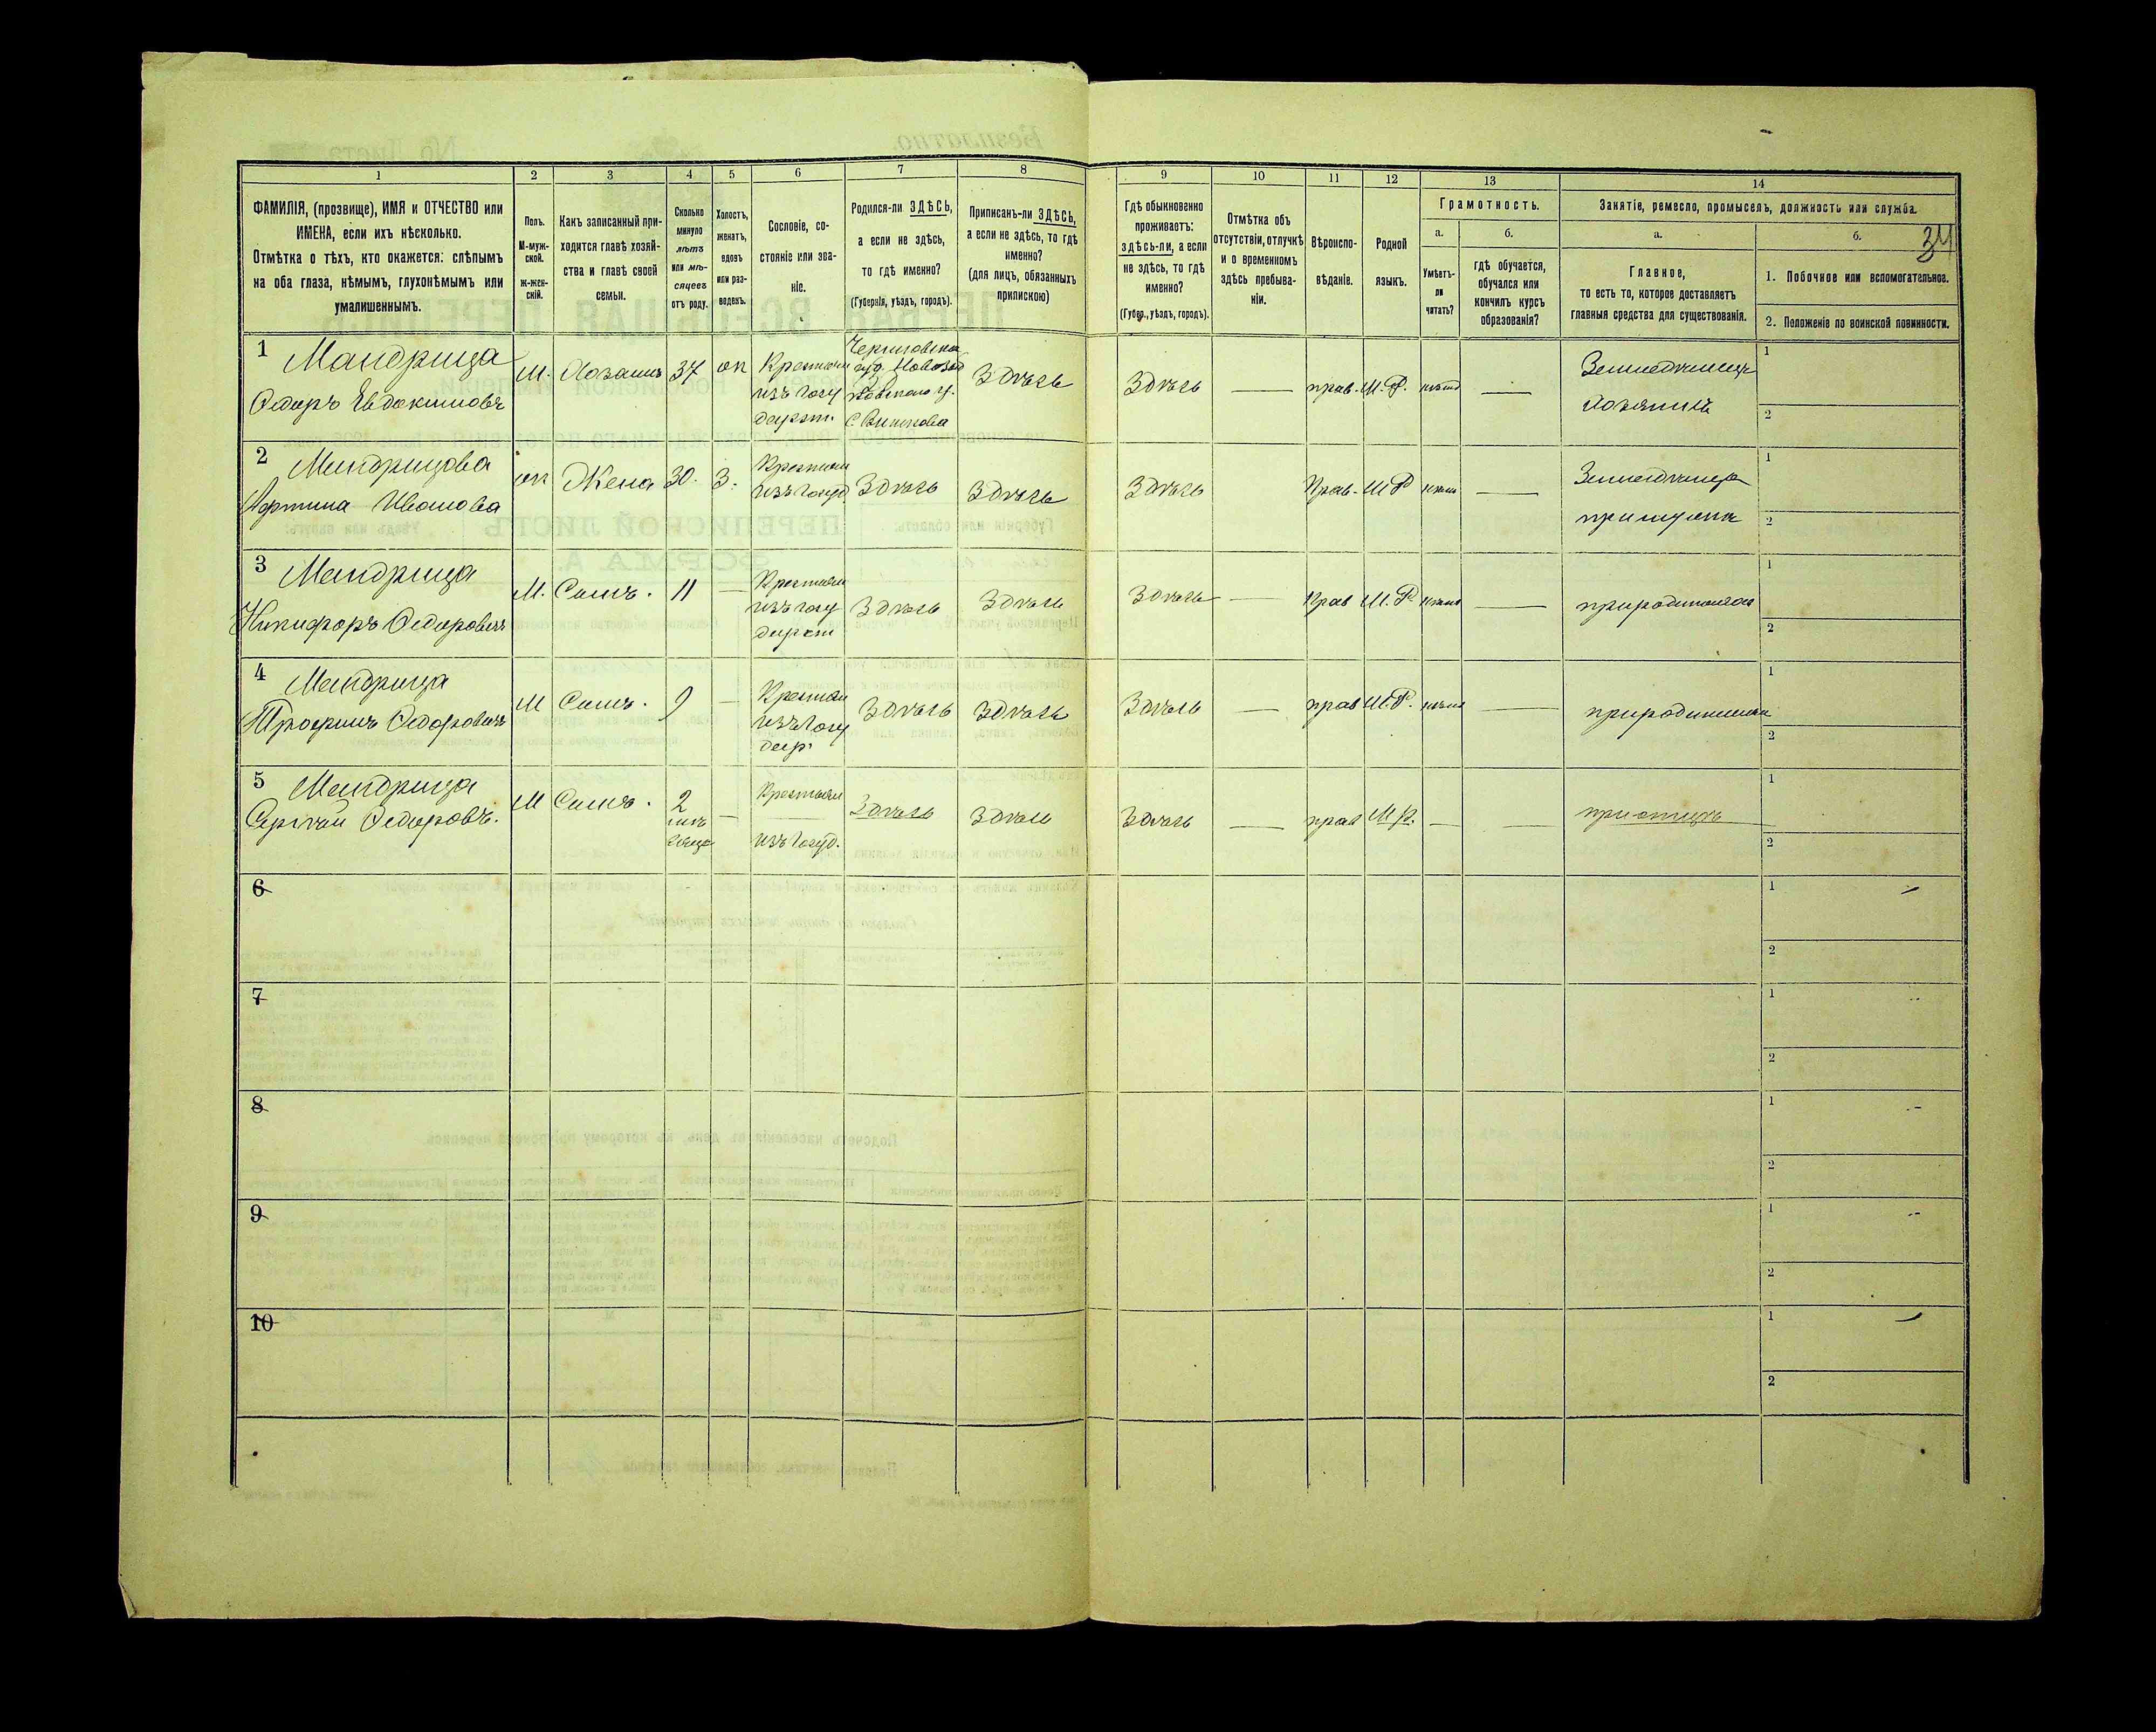 34
1 2 3 4 5 6 7 8 9 10 11 12 13 14
ФАМИЛІЯ, (прозвище), ИМЯ и ОТЧЕСТВО или
ИМЕНА, если ихъ нѣсколько.
Отмѣтка о тѣхъ, кто окажется: слѣпымъ
на оба глаза, нѣмымъ, глухонѣмымъ или
умалишеннымъ.
Полъ.
М-муж-
ской.
ж-жен-
скій.
Какъ записанный при-
ходится главѣ хозяй-
ства и главѣ своей
семьи.
Сколько
минуло
лѣтъ
или мѣ-
сяцевъ
отъ роду.
Холостъ,
женатъ,
вдовъ
или раз-
веденъ.
Сословіе, со-
стояніе или зва-
ніе.
Родился-ли ЗДѢСЬ,
а если не здѣсь,
то гдѣ именно?
(Губернія, уѣздъ, городъ).
Приписанъ-ли ЗДѢСЬ,
а если не здѣсь, то гдѣ
именно?
(для лицъ, обязанныхъ
припискою)
Гдѣ обыкновенно
проживаетъ:
здѣсь-ли, а если
не здѣсь, то гдѣ
именно?
(Губер., уѣздъ, городъ).
Отмѣтка объ
отсутствіи, отлучкѣ
и о временномъ
здѣсь пребыва-
ніи.
Вѣроиспо-
вѣданіе.
Родной
языкъ.
Грамотность.
а.
Умѣетъ-
ли
читать?
б.
гдѣ обучается,
обучался или
кончилъ курсъ
образованія?
Занятіе, ремесло, промыселъ, должность или служба.
а.
Главное,
то есть то, которое доставляетъ
главныя средства для существованія.
б.
1. Побочное или вспомогательное.
2. Положеніе по воинской повинности.
1 Мандрица
Федоръ Евдокимовъ
М. Хозаинъ 37 жн
Крестьян
изъ госу
дарст.
Черниговска
губ. Новозыб
ковскаго у.
Здѣсь Здѣсь — прав. М.Р. нѣтъ —
Хозяинъ
1
2
2 Мандрицова
Иванова
жн Жена 30. З.
Крестьян
изъ госуд.
Здѣсь Здѣсь Здѣсь Прав. М Р нѣтъ —
при мужѣ
1
2
3 Мандрица
Никифоръ Федоровичъ
М. Сынъ. 11 —
Крестьян
изъ госу
дарст
Здѣсь Здѣсь Здѣсь — Прав М.Р нѣтъ —
при родителяхъ
1
2
4 Мандрица
Трофимъ Федоровичъ
М Сынъ. 9 —
Крестьян
изъ госу
дар.
Здѣсь Здѣсь Здѣсь — прав М.Р. нѣтъ —
при родителяхъ
1
2
5 Мандрица
Сергѣй Федоровъ.
М Сынъ. 2 —
Крестьян
изъ госуд.
Здѣсь Здѣсь Здѣсь — прав М.Р. — —
при отцѣ
1
2
6
1
2
7
1
2
8
1
2
9
1
2
10
1
2